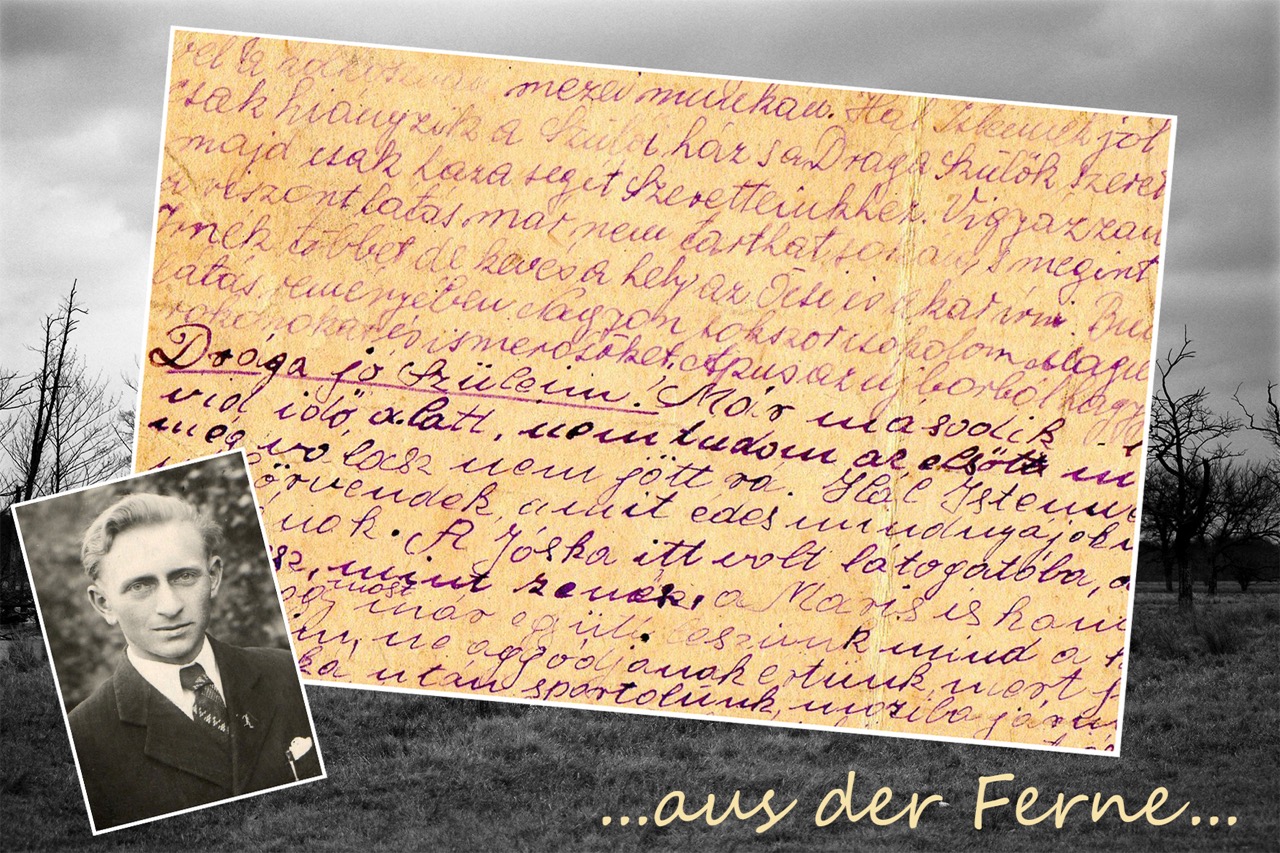 mezei munkán. Hál Istennek jól
csak hiányzik a Szülői ház s a Drága Szülők szeret
majd csak haza segít Szeretteinkhez. Vigyázzan
a viszontlátás már nem tarthat soká s megint
írnék többet de kevés a hely az Öcsi is akar írni. Bu
látás reményében Nagyon sokszor csókolom
rokonokat és ismerősöket. Apus az új borból hagy
Drága jó Szüleim! Már második
vid idő alatt, nem tudom az elsőt
még válasz nem jött rá. Hál Istenn
örvendek, amit édes mindnyájok
nak. A Jóska itt volt látogatóba, a
sz, mint zenész, a Maris is
most már együtt leszünk mind a
ne aggódjanak értünk, mert j
ka után sportolunk, moziba járu
...aus der Ferne...